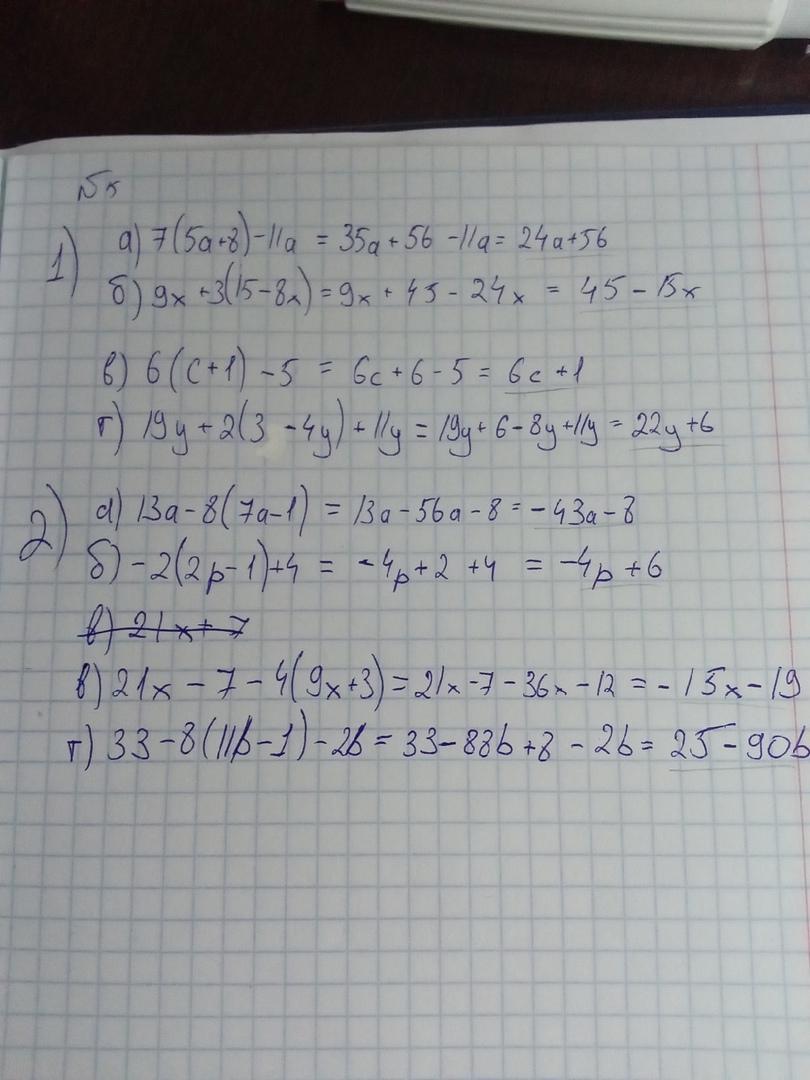 1) а) 7(5a+8)-11a = 35a+56-11a = 24a+56
б) 9x+3(15-8x)=9x+45-24x = 45-15x
в) 6(c+1)-5 = 6c+6-5 = 6c+1
г) 19y+2(3-4y)+11y = 19y+6-8y+11y = 22y+6
2) а) 13a-8(7a-1) = 13a-56a-8 = -43a-8
б) -2(2p-1)+4 = -4p+2+4 = -4p+6
в) 21x+7
в) 21x-7-4(9x+3)=21x-7-36x-12 = -15x-19
г) 33-8(11b-1)-2b = 33-88b+8-2b = 25-90b